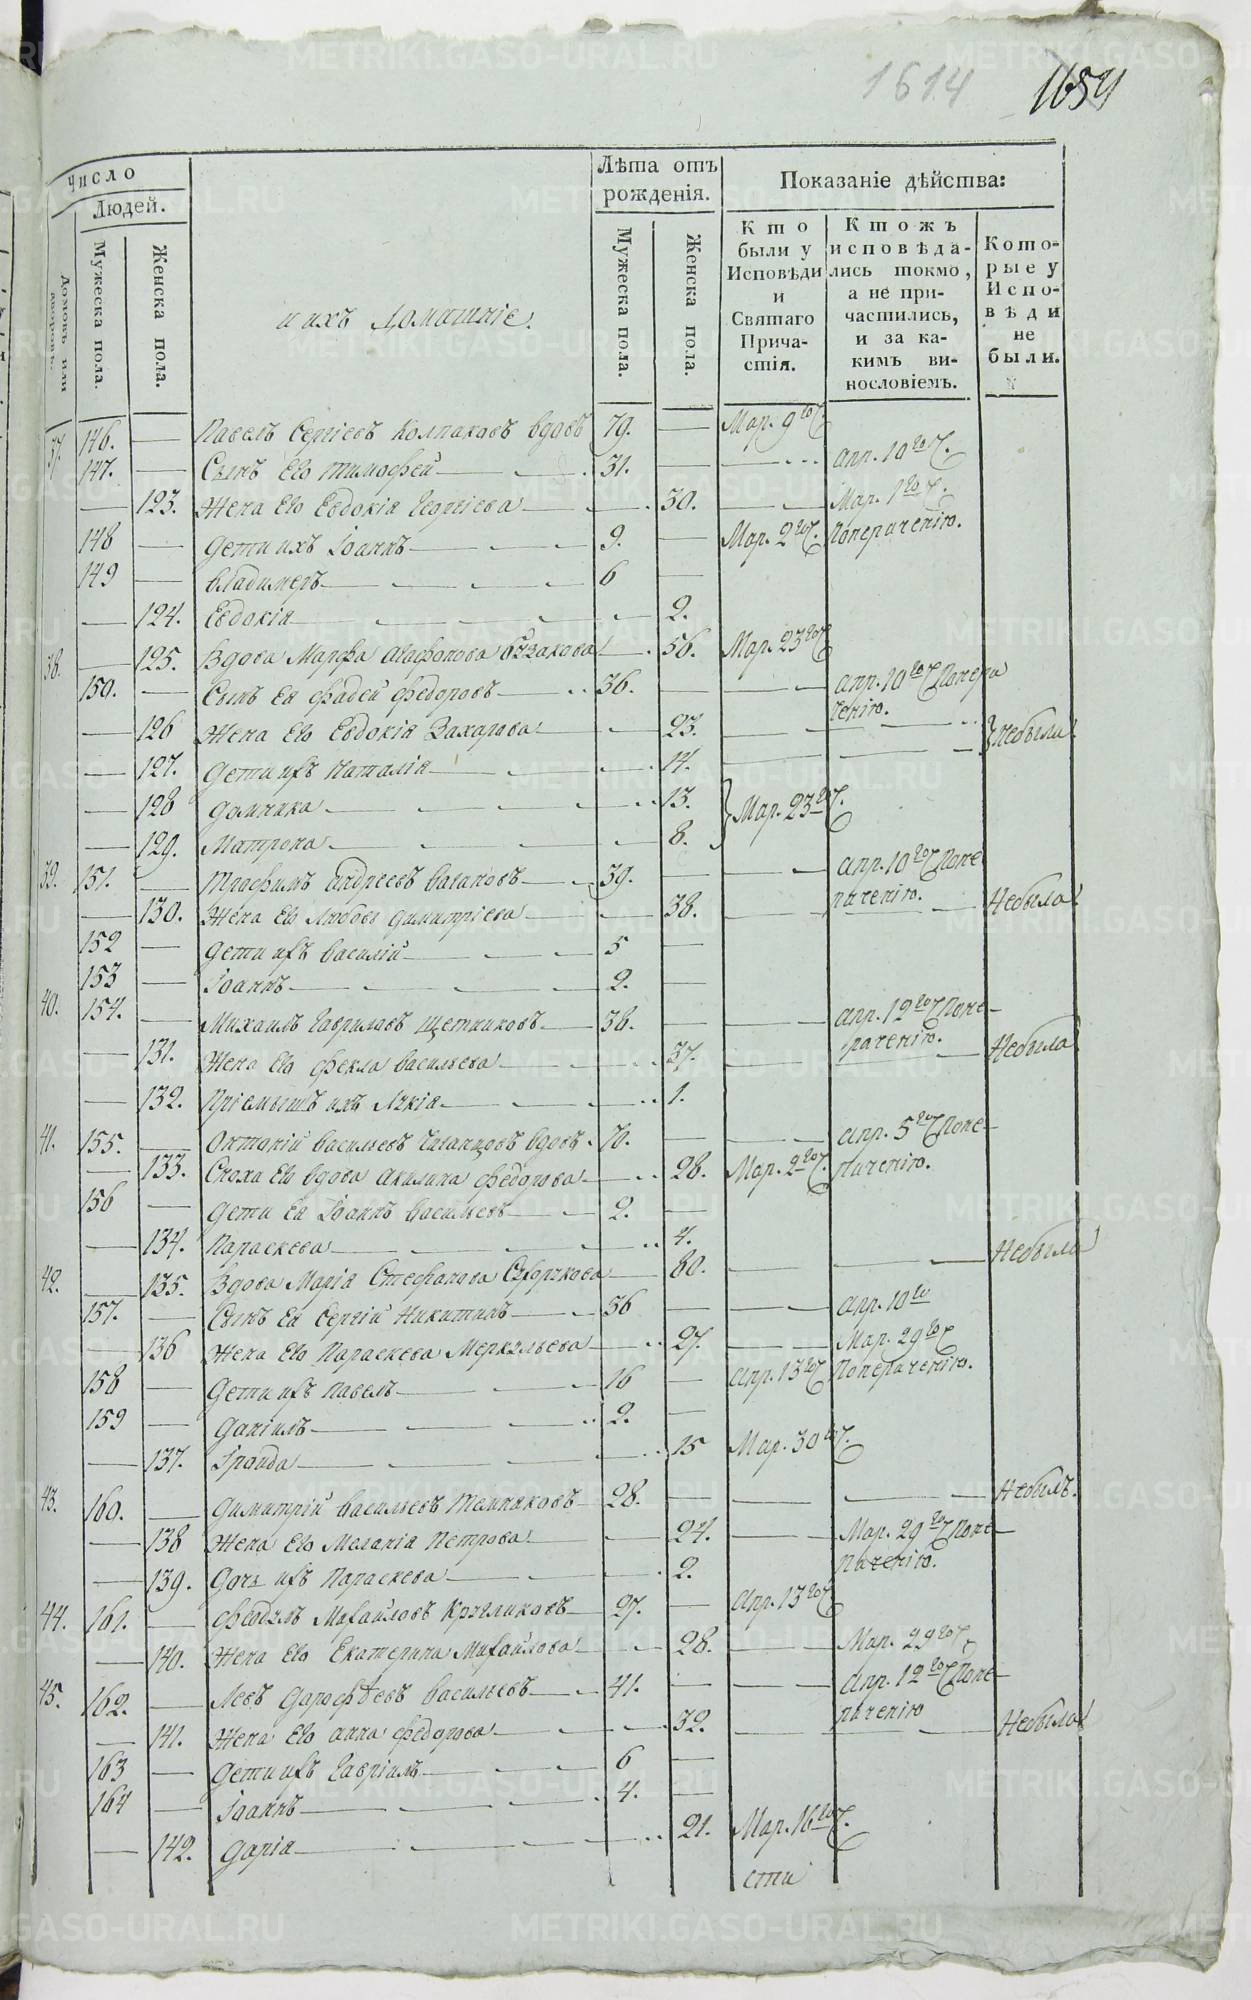 1614 1654
Число
Людей.
Домовъ или дворовъ.
Мужеска пола.
Женска пола.
и ихъ домашніе.
Лѣта отъ рожденія.
Мужеска пола.
Женска пола.
Показаніе дѣйства:
Кто были у Исповѣди и Святаго Причастія.
Ктожъ исповѣдались токмо, а не причастились, и за какимъ винословіемъ.
Которые у Исповѣди не были.
37. 146. Павелъ Сергіевъ Колпаковъ вдовъ 79. Мар. 9го
147. Сынъ Его Тимофей 31. Апр. 10го
123. Жена Его Евдокія Георгіева 30. Мар. 1го
148 Дети ихъ Іоаннъ 9. Мар. 2го
149 Владимеръ 6
124. Евдокія 2.
38. 125. Вдова Марфа Агафонова 56. Мар. 23го
150. Сынъ Ея Фадей Федоровъ 36. Апр. 10го
126 Жена Его Евдокія Захарова 23. небыли
127. Дети ихъ Наталія 14.
128 Домника 13. Мар. 23го
129. Матрона 8.
39. 151. Трофимъ Андреевъ Вагановъ 39. Апр. 10го
130. Жена Его Любовь Димитріева 38. Небыла
152 Дети ихъ Василій 5
153 Іоаннъ 2.
40. 154. Михаилъ Гавриловъ Щетниковъ 38. Апр. 12го
131. Жена Его Фекла Васильева 37. Небыла
132. Пріемышъ ихъ Лукія 1.
41. 155. Васильевъ вдовъ 70. Апр. 5го
133. Сноха Его вдова Акилина Федорова 28. Мар. 2го
156 Дети Ея Іоаннъ Васильевъ 2.
134. Параскева 4.
42. 135. Вдова Марія Стефанова 80. Небыла
157. Сынъ Ея Сергій Никитинъ 36 Апр. 10го
136 Жена Его Параскева Меркульева 27. Мар. 29го
158 Дети ихъ Павелъ 16 Апр. 13го
159 Даніилъ 2.
137. Іраида 15 Мар. 30го
43. 160. Димитрій Васильевъ Темниковъ 28. Небылъ.
138 Жена Его Меланія Петрова 24. Мар. 29го
139. Дочь ихъ Параскева 2.
44. 161. Федулъ Михайловъ Кругликовъ 27. Апр. 13го
140. Жена Его Екатерина Михайлова 28. Мар. 29го
45. 162. Левъ Дорофѣевъ Васильевъ 41. Апр. 12го
141. Жена Его Анна Федорова 32. Небыла
163 Дети ихъ Гавріилъ 6
164 Іоаннъ 4.
142. Дарія 21. Мар. 16го
сти
METRIKI.GASO-URAL.RU